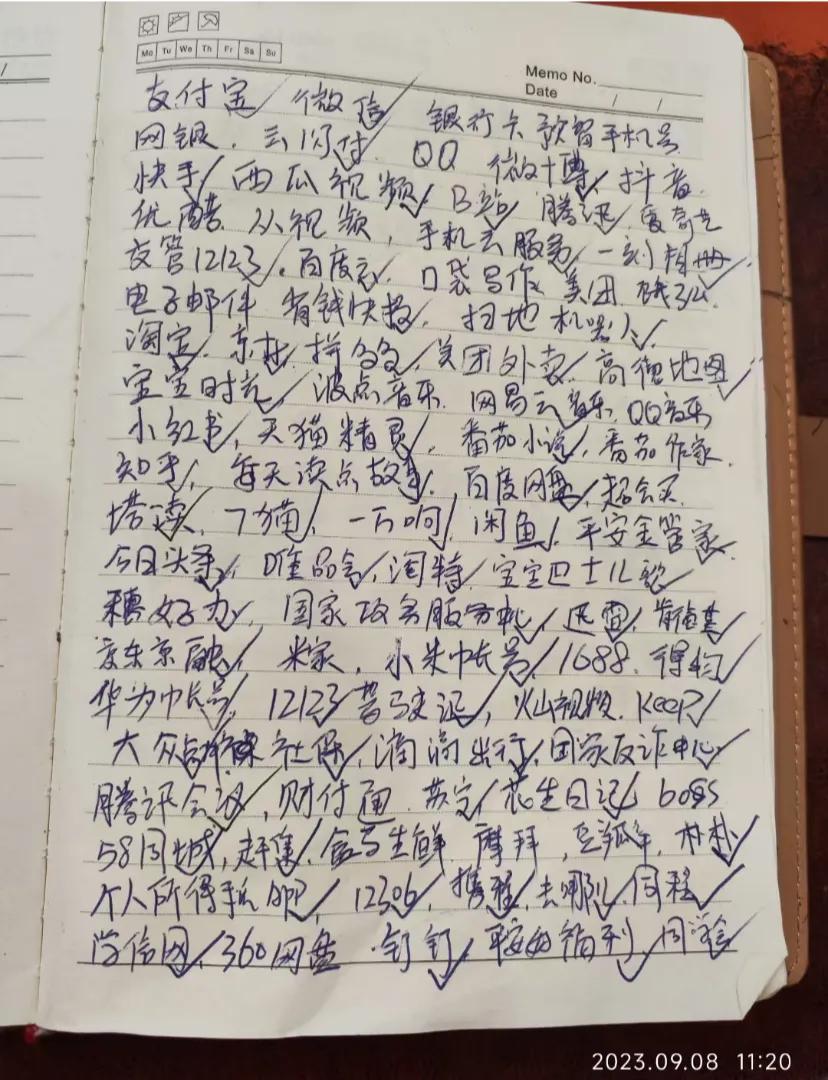 Mo Tu We Th Fr Sa Su
Memo No.
Date / /
支付宝 微信 银行卡预留手机号
网银. 云闪付. QQ 微博 抖音.
快手 西瓜视频, B站 腾讯 爱奇艺
优酷. 从视频, 手机云服务, 一刻相册
交管12123, 百度云, 口袋写作 美团.
电子邮件 省钱快报, 扫地机器人,
淘宝, 京东, 拼多多, 美团外卖, 高德地图
宝宝时光, 波点音乐. 网易云音乐. QQ音乐
小红书, 天猫精灵, 番茄小说, 番茄作家.
知乎, 每天读点故事, 百度网盘, 超会买
塔读, 七猫, 闲鱼, 平安金管家
今日头条, 唯品会, 淘特, 宝宝巴士儿歌
穗好办, 国家政务服务, 肯德基
京东金融, 米家, 小米帐号, 1688. 得物
华为帐号, 12123 驾驶证, 火山视频. Keep
大众点评 社保, 滴滴出行, 国家反诈中心
腾讯会议, 财付通. 苏宁 花生日记 boss
58同城, 赶集, 盒马生鲜. 摩拜, 朴朴
个人所得税, 12306, 携程, 去哪儿, 同程
学信网, 360网盘. 钉钉, 福利
2023.09.08 11:20